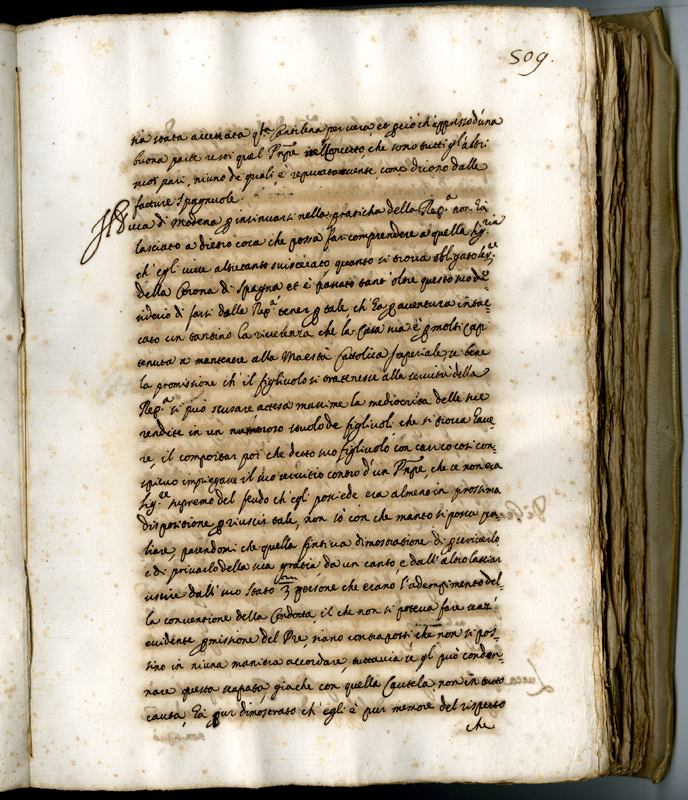 509.
ria stata accettata q.ta Cantilena per vera, et perciò ch'appresso d'una
buona parte resti quel Pnpe nel Concetto, che sono tutti gl'altri
suoi pari, niuno de quali è reputato esente, come dicono dalle
fatture Spagnuole.
Il Duca di Modena p insinuarsi nella pratica della Rep.a non hà
lasciato a dietro cosa che possa far comprendere a quella Sig.ria
ch'egli vive altretanto sviscerato quanto si trova obligato ser.re
della Corona di Spagna et è passato tant'oltre questo suo de=
siderio di farsi dalla Rep.a tener p tale, ch'hà p aventura intac=
cato un tantino la riverenza che la Casa sua è p molti capi
tenuta a mantenere alla Maestà Cattolica Imperiale, se bene
la promissione ch'il figlivolo si trattenesse alla servitù della
Rep.a si può scusare attesa massime la mediocrità delle sue
rendite in un numeroso stuolo de figlivoli che si trova have=
re, il comportar poi che detto suo figlivolo con carico così con=
spicuo impiegasse il suo servitio contro d'un Pnpe, che se non era
Sig.re supremo del feudo ch'egli possiede era almeno in prossima
dispositione p riuscir tale, non sò con che manto si possa pa=
liare, parendomi che quella fintiva dimostratione di
e di privarlo della sua gratia da un canto, e dall'altro lasciar
uscire dall'suo Stato 3 persone che erano l'adempimento del=
la conventione della Condotta, il che non si poteva fare senz'
evidente pmissione del Pre, siano contraposti che non si pos=
sino in niuna maniera accordare, tuttavia se gli può condon=
nare questa scapata, giache con quella Cautela non in tutto
cauta, hà pur dimostrato ch'egli è pur memore del rispetto
che